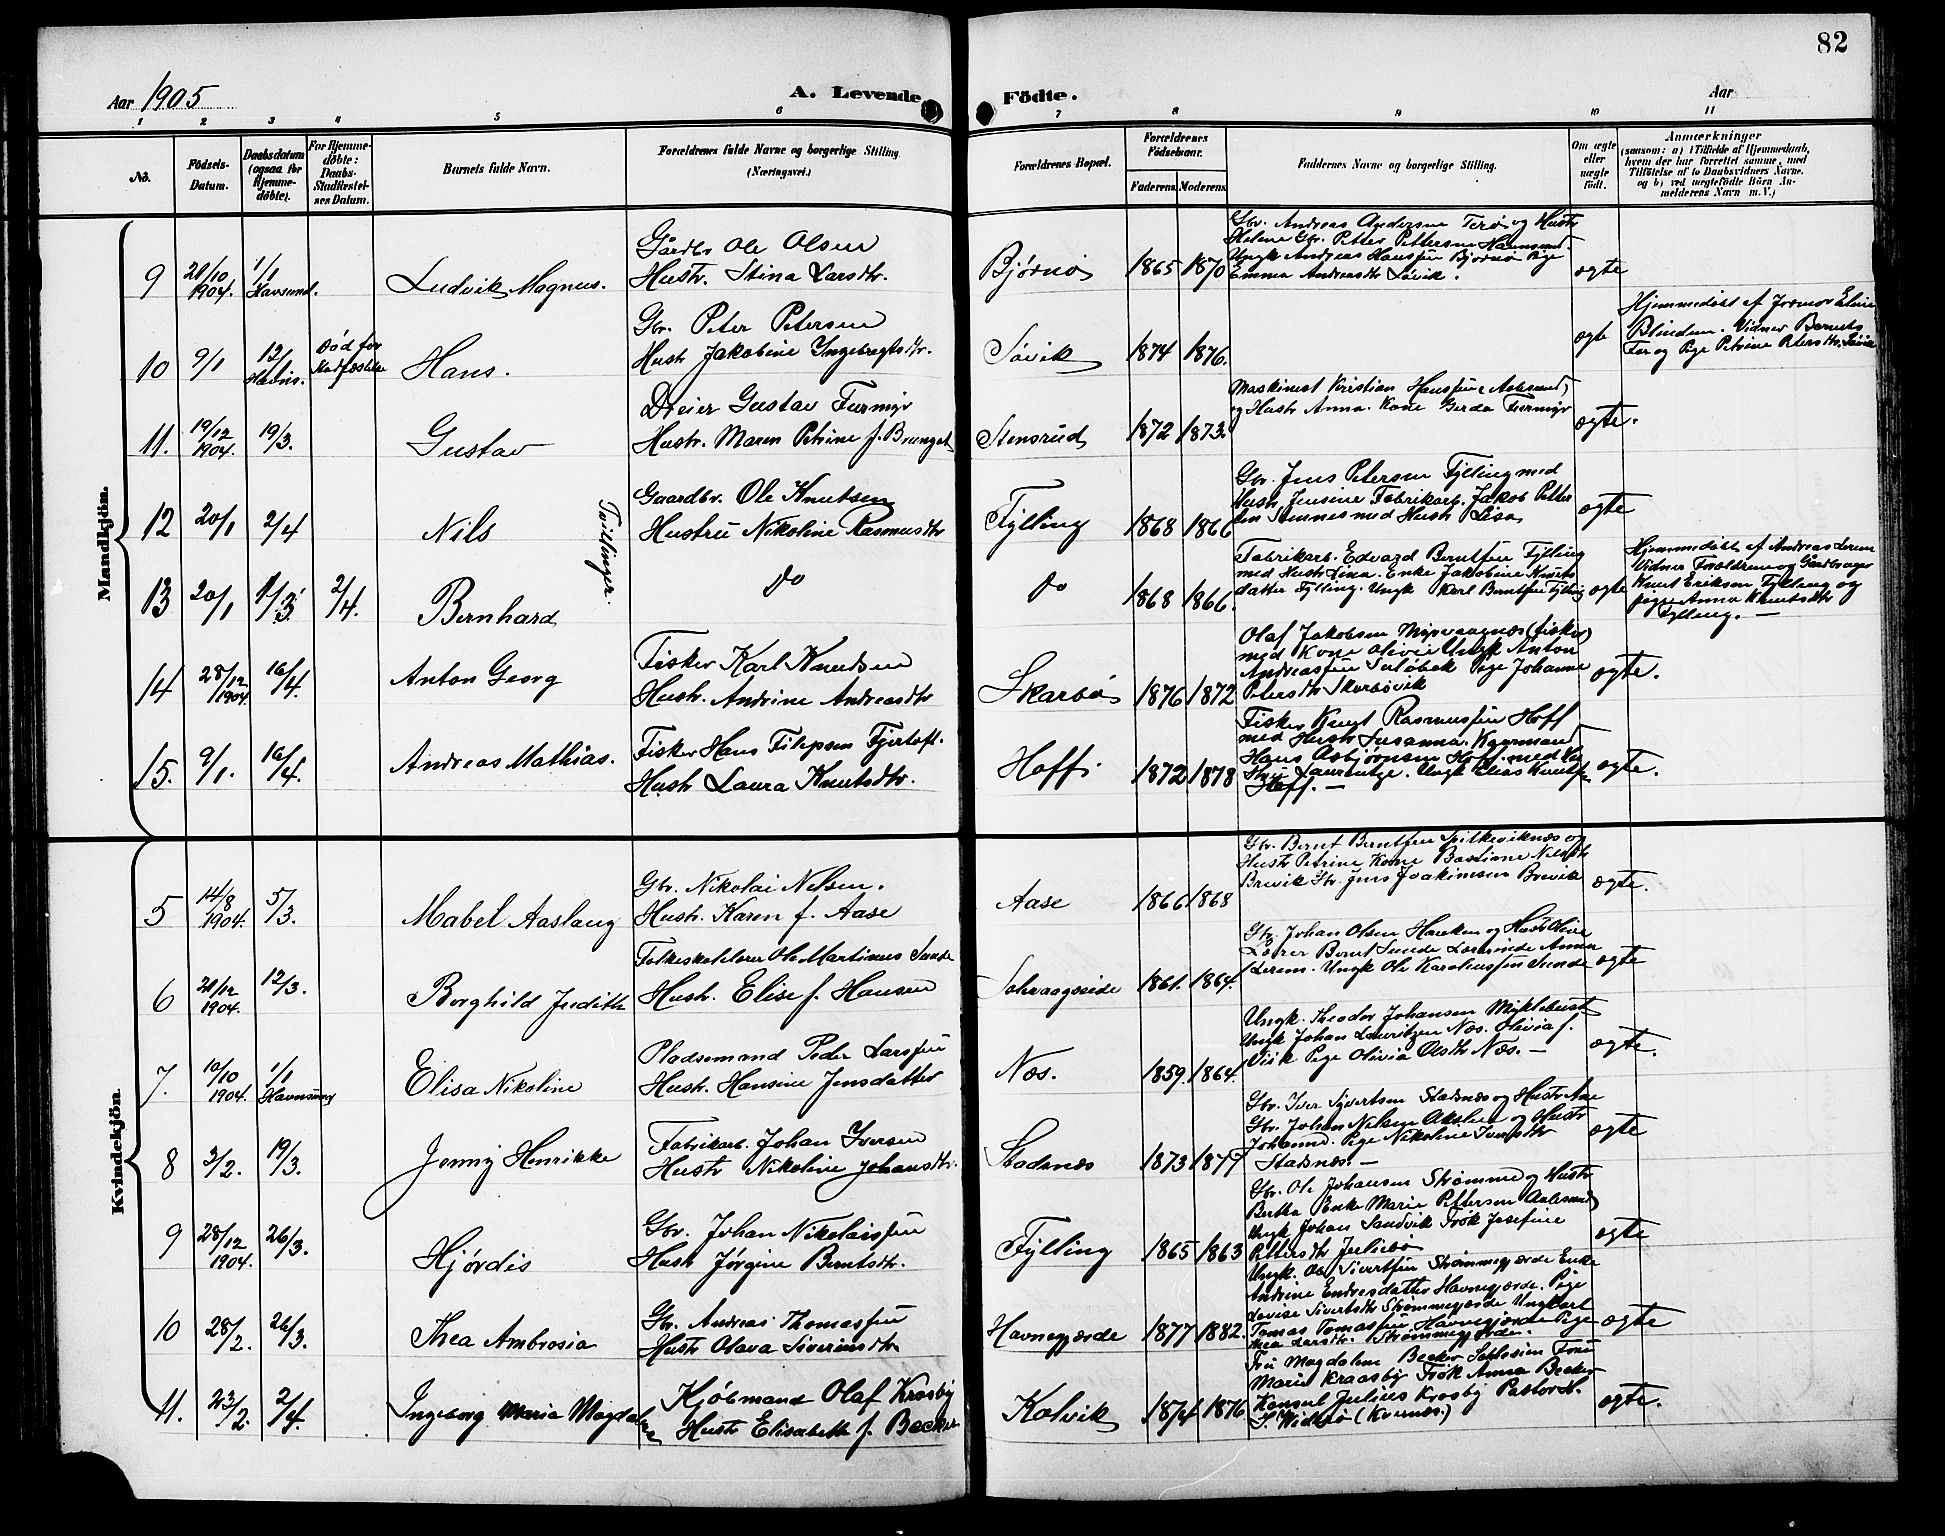 82
Aar 1905
A. Levende Födte.
Aar
1 2 3 4 5 6 7 8 9 10 11
No.
Födsels-Datum.
Daabsdatum (ogsaa for Hjemme-døbte).
For Hjemme-døbte: Daabs-Stadfæstel-ses Datum.
Barnets fulde Navn.
Forældrenes fulde Navne og borgerlige Stilling (Næringsvei.)
Forældrenes Bopæl.
Forældrenes Födselsaar.
Faderens. Moderens.
Faddernes Navne og borgerlige Stilling.
Om ægte eller uægte født.
Anmærkninger
(saasom: a) i Tilfælde af Hjemmedaab,
hvem der har forrettet samme, med
Tilføielse af to Daabsvidners Navne.
og b) ved uægtefödte Börn An-
melderens Navn m. V.)
Mandkjön.
9 28/10 1904. 1/1 Havsund. Ludvik Magnus.
Gårdbr Ole Olsen
Hustr. Stina Larsdtr.
Bjørnø 1865 1870
Gbr. Andreas Andersen Terø og Hustr
Helene Gbr. Petter Pettersen Havnsund
Ungk Andreas Hanssen Bjørnø Pige
Emma Andreasdtr Søvik.
ægte
10 9/1 12/1 Død før Stadfæstelse Hans.
Gbr. Peter Petersen
Hustr Jakobine Ingebrigtsdtr.
Søvik 1874 1876.
ægte
Hjemmedøbt af Jordmor Eline
Blindem. Vidner Barnets
Far og Pige Petrine Petersdtr. Søvik
11. 19/12 1904. 19/3. Gustav
Dreier Gustav Furmyr
Hustr. Maren Petrine f. Brunget
Stensrud 1872 1873.
Maskinest Kristian Hanssen Aalesund
og Hustr Anna. Kone Gerda Furmyr
ægte.
12 20/1 2/4 Nils
Tvillinger.
Gaardbr. Ole Knutsen
Hustru Nikoline Rasmusdtr
Fylling 1868 1866
Gbr. Jens Petersen Fylling med
Hustr Jensine Fabrikarb. Jakob Petter
sen Stennes med Hustr Lisa
ægte
13 20/1 1/3 2/4. Bernhard
Do
Do 1868 1866.
Fabrikarb. Edvard Berntsen Fylling
med Hustr Lina. Enke Jakobine Knuts
datter Fylling. Ungk Karl Berntsen Fylling
ægte
Hjemmedøbt af Andreas Lerem
Vidner Forældrene og Gårdbruger
Knut Eriksen Fylling og
pige Anna Knutsdtr
Fylling. —
14 28/12 1904. 16/4. Anton Georg
Fisker Karl Knudsen
Hustr. Andrine Andreasdtr
Skarbø 1876 1872
Olaf Jakobsen (fisker)
med Kone Olivie Ungk Anton
Andreassen Pige Johanne
Petersdtr Skarbøvik
ægte.
15. 9/1. 16/4. Andreas Mathias.
Fisker Hans Filipsen Fjertoft.
Hustr Laura Knutsdtr.
Hoff 1872 1878
Fisker Knut Rasmussen Hoff
med Hustr Susanna. Kaarmand
Hans Asbjørnsen Hoff. med Hu
stru Laurentze. Ungk Elias Knutsen
Hoff. —
ægte.
Kvindekjön.
5 14/8 1904. 5/3. Mabel Aaslaug
Gbr. Nikolai Nelsen.
Hustr. Karen f. Aase
Aase 1866 1868
Gbr. Bernt Berntsen Spilkeviknæs og
Hustr Petrine Kone Bastiane Nilsdtr
Brevik Gbr. Jens Joakimsen Brevik
ægte.
6 28/12 1904. 12/3. Borghild Judith
Folkeskolelærer Ole Martinus Sunde
Hustr. Elise f. Hansen
Solvaagseide 1861. 1864.
Gbr. Johan Olsen Hareken og Hustr Oline
Lærer Bernt Sunde Lærerinde Anna
Lerem. Ungk Ole Karoliussen Sunde
ægte
7. 10/10 1904. 1/1 Havnsund Elisa Nikoline
Pladsemand Peder Larssen
Hustr. Hansine Jensdatter
Næs. 1859. 1864.
Ungk. Theodor Johansen Myklebust
Ungk Johan Lauritzen Næs. Olivia f.
Viik Pige Olivia Olsdtr Næs. —
ægte.
8 3/2. 19/3. Jenny Henrikke
Fabrikarb. Johan Iversen
Hustr Nikoline Johansdtr.
Stadsnæs 1873 1877
Gbr. Iver Syvertsen Stadsnæs og Hustr Ane
Gbr. Johan Nelsen Akslen og Hustr
Johanne. Pige Nikoline Iversdtr
Stadsnæs. —
ægte
9 28/12 1904. 26/3. Hjørdis
Gbr. Johan Nikolaissen
Hustr Jørgine Berntsdtr.
Fylling 1865 1863
Gbr. Ole Johansen Strømme og Hustr
Bertha Enke Marie Pettersen Aalesund
Ungk Johan Sandvik Frøk Josefine
Pettersdtr Juliebø
ægte
10 28/2. 26/3. Thea Ambrosia
Gbr. Andreas Thomassen
Hustr Olava Siverinsdtr
Havnegjærde 1877 1882.
Ungk. Ole Sivertsen Strømmegjærde Enke
Andrine Endresdatter Havnegjærde. Pige
Lovise Sivertsdtr Strømmegjærde Ungkarl
Tomas Tomassen Havnegjærde Pige
Thea Larsdtr. Strømmegjærde.
ægte
11. 23/2. 2/4. Ingeborg Maria Magdalene
Kjøbmand Olaf Krosby
Hustr Elisabeth f. Becker
Kolvik 1874 1876
Fru Magdalene Becker Schlesien Fru
Marie Kraasby Frøk Anna Becker
Konsul Julius Krosby Pastor N.
S. Widtsø (Kvernæs)
ægte.